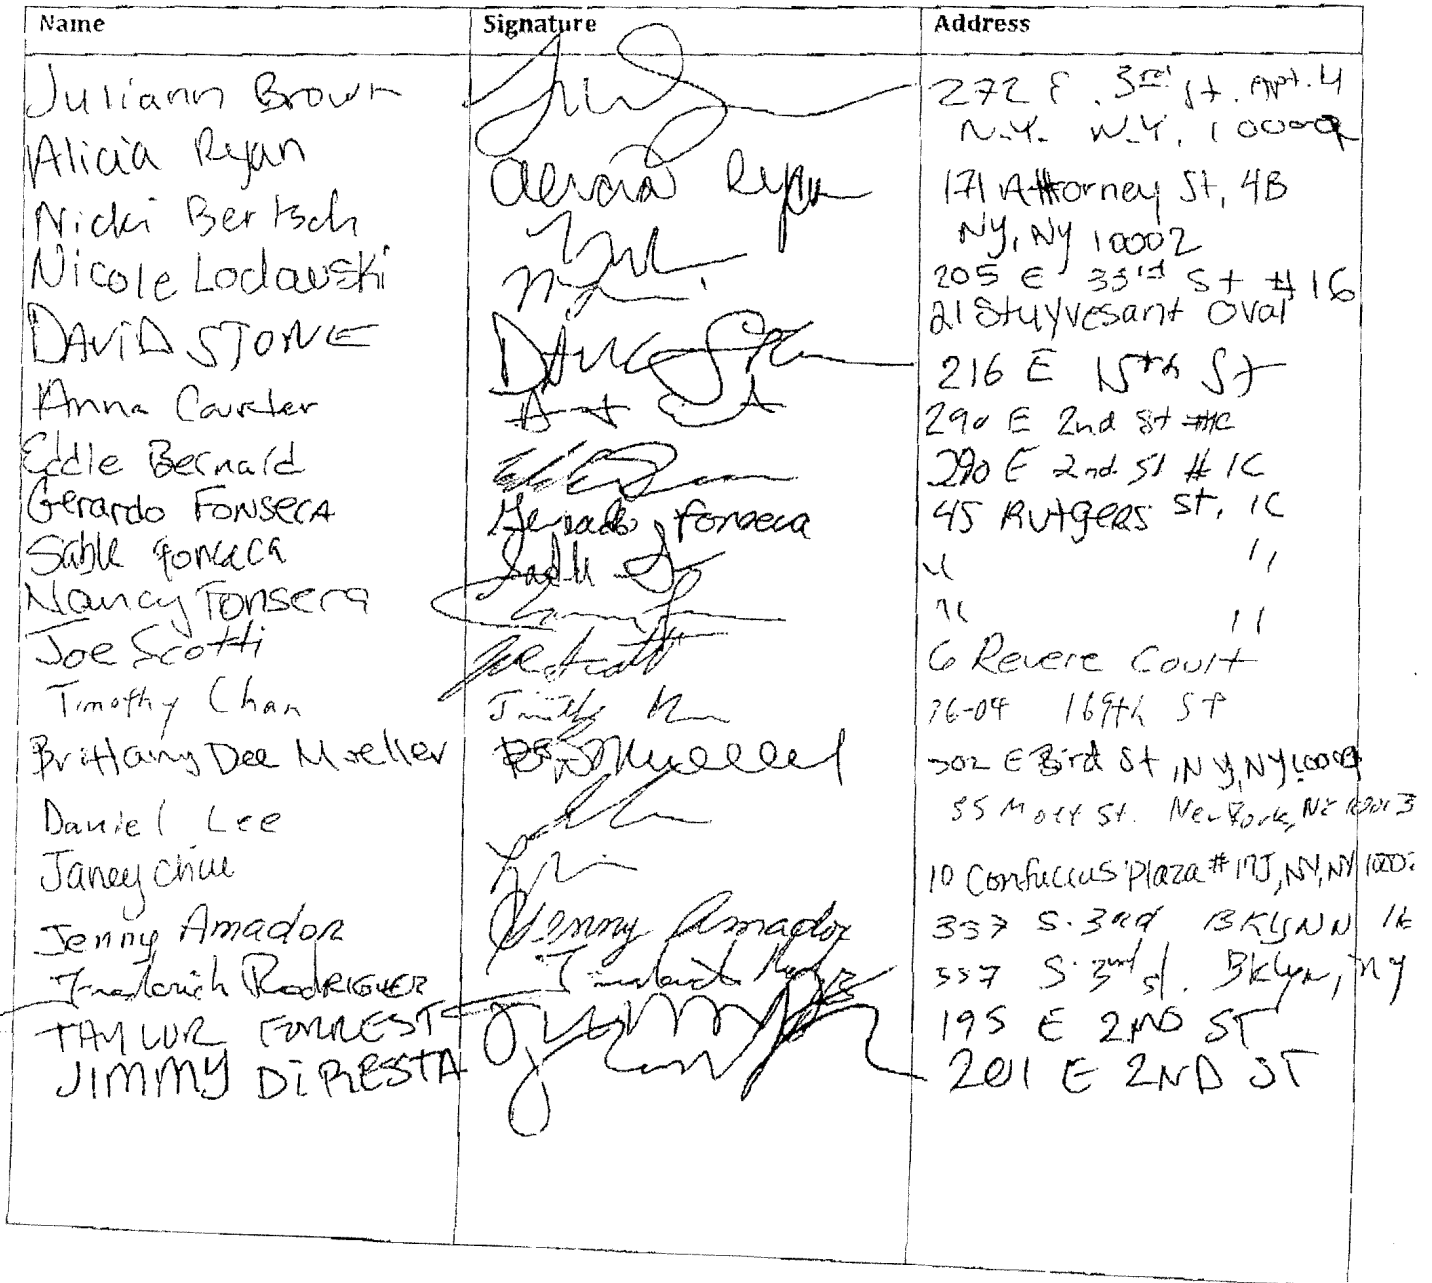 Name Signature Address
Juliann Brown 272 E. 3rd St. Apt. 4
N.Y. N.Y. 10009
Alicia Ryan Alicia Ryan 171 Attorney St, 4B
NY, NY 10002
Nicki Bertsch 205 E 33rd St #16
Nicole Lodowski 21 Stuyvesant Oval
DAVID STONE 216 E 15th St
Anna 290 E 2nd St #1C
Eddie Bernard 290 E 2nd St #1C
Gerardo FONSECA Gerardo Fonseca 45 Rutgers St, 1C
Sable Fonseca Sable " "
Nancy Fonseca " "
Joe Scotti Joe Scotti 6 Revere Court
Timothy Chan Timothy 76-04 169th St
Brittany Dee Mueller Mueller 302 E 3rd St, NY, NY 10009
Daniel Lee 55 Mott St. New York, NY 10013
Janey Chiu 10 Confucius Plaza #17J, NY, NY
Jenny Amador Jenny Amador 337 S. 3rd BKLYNN
Frederick RODRIGUEZ 337 S. 3rd st. Bklyn, NY
TAYLOR FORREST 195 E 2ND ST
JIMMY DIRESTA 201 E 2ND ST